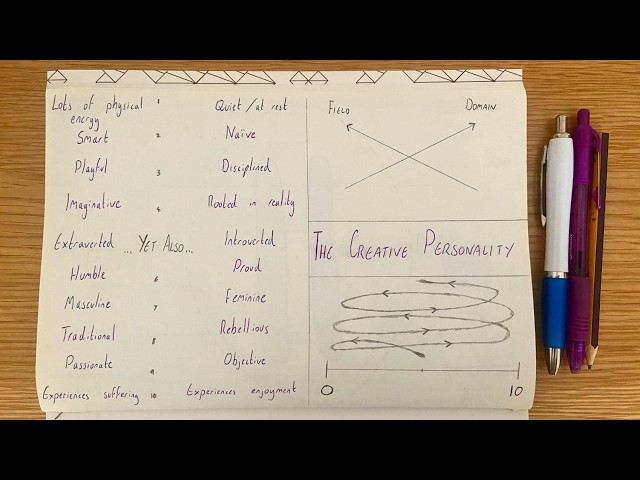 Lots of physical energy 1 Quiet / at rest
Smart 2 Naïve
Playful 3 Disciplined
Imaginative 4 Rooted in reality
Extraverted ... Yet Also... Introverted
Humble 6 Proud
Masculine 7 Feminine
Traditional 8 Rebellious
Passionate 9 Objective
Experiences suffering 10 Experiences enjoyment
Field Domain
The Creative Personality
0 10